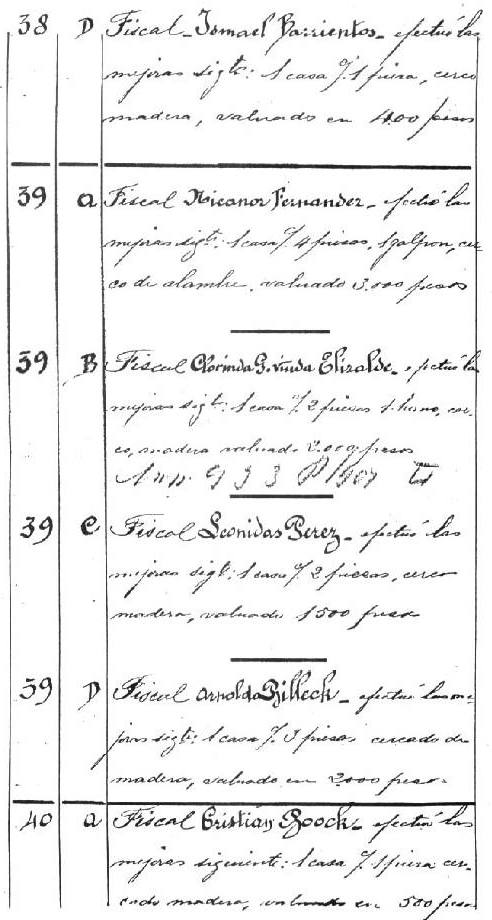 38 D Fiscal - Ismael Barrientos - efectuó las
mejoras sigte: 1 casa %. 1 pieza, cerco
madera, valuado en 400 pesos
39 a Fiscal Nicanor Fernandez - efectuó las
mejoras sigte: 1 casa %. 4 piezas, 1 galpon, cer-
co de alambre, valuado 3.000 pesos
39 B Fiscal Clorinda G. viuda Elizalde - efectuó las
mejoras sigte: 1 casa %. 2 piezas 1 horno, cer-
co, madera valuado 2.000 pesos
933 P/1907
39 C Fiscal Leonidas Perez - efectuó las
mejoras sigte: 1 casa %. 2 piezas, cerco
madera, valuado 1500 pesos
39 D Fiscal Arnoldo Billeck - efectuó las me-
joras sigte: 1 casa %. 3 piezas cercado de
madera, valuado en 2,000 pesos
40 a Fiscal Cristián Boock - efectuó las
mejoras siguiente: 1 casa %. 1 pieza cer-
cado madera, valuado en 500 pesos